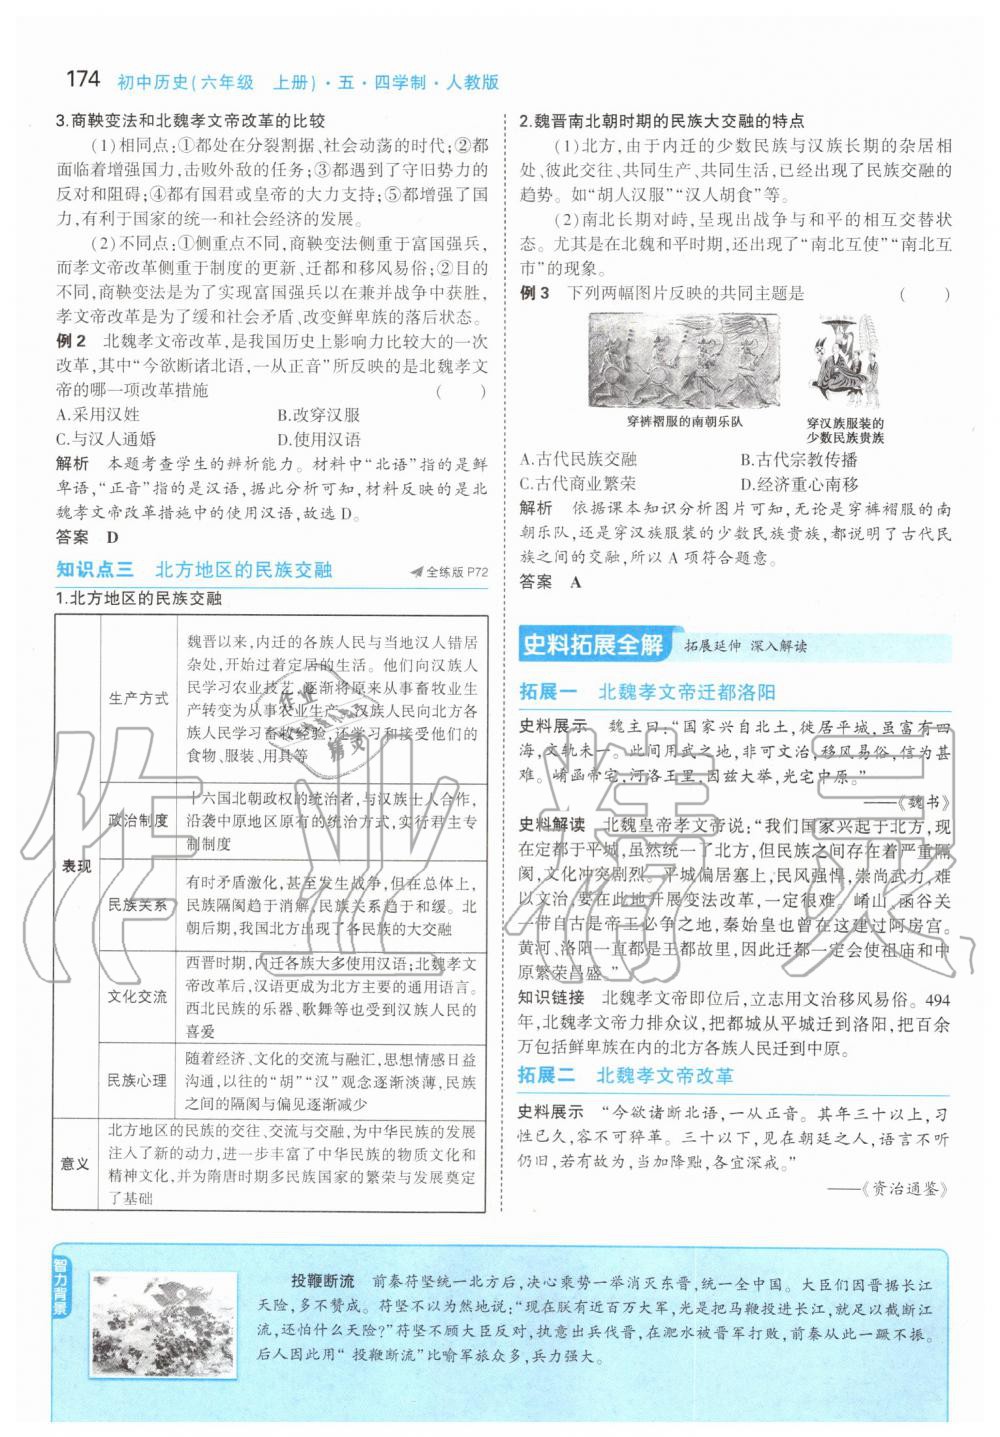 174 初中历史(六年级　上册)·五·四学制·人教版
3.商鞅变法和北魏孝文帝改革的比较
(1)相同点:①都处在分裂割据、社会动荡的时代;②都
面临着增强国力,击败外敌的任务;③都遇到了守旧势力的
反对和阻碍;④都有国君或皇帝的大力支持;⑤都增强了国
力,有利于国家的统一和社会经济的发展。
(2)不同点:①侧重点不同,商鞅变法侧重于富国强兵,
而孝文帝改革侧重于制度的更新、迁都和移风易俗;②目的
不同,商鞅变法是为了实现富国强兵以在兼并战争中获胜,
孝文帝改革是为了缓和社会矛盾、改变鲜卑族的落后状态。
例2 北魏孝文帝改革,是我国历史上影响力比较大的一次
改革,其中“今欲断诸北语,一从正音”所反映的是北魏孝文
帝的哪一项改革措施 (　　)
A.采用汉姓 B.改穿汉服
C.与汉人通婚 D.使用汉语
解析 本题考查学生的辨析能力。材料中“北语”指的是鲜
卑语,“正音”指的是汉语,据此分析可知,材料反映的是北
魏孝文帝改革措施中的使用汉语,故选D。
答案 D
知识点三 北方地区的民族交融 全练版P72
1.北方地区的民族交融
表现
生产方式
魏晋以来,内迁的各族人民与当地汉人错居
杂处,开始过着定居的生活。他们向汉族人
民学习农业技艺,逐渐将原来从事畜牧业生
产转变为从事农业生产。汉族人民向北方各
族人民学习畜牧经验,还学习和接受他们的
食物、服装、用具等
政治制度
十六国北朝政权的统治者,与汉族士人合作,
沿袭中原地区原有的统治方式,实行君主专
制制度
民族关系
有时矛盾激化,甚至发生战争,但在总体上,
民族隔阂趋于消解,民族关系趋于和缓。北
朝后期,我国北方出现了各民族的大交融
文化交流
西晋时期,内迁各族大多使用汉语;北魏孝文
帝改革后,汉语更成为北方主要的通用语言。
西北民族的乐器、歌舞等也受到汉族人民的
喜爱
民族心理
随着经济、文化的交流与融汇,思想情感日益
沟通,以往的“胡”“汉”观念逐渐淡薄,民族
之间的隔阂与偏见逐渐减少
意义
北方地区的民族的交往、交流与交融,为中华民族的发展
注入了新的动力,进一步丰富了中华民族的物质文化和
精神文化,并为隋唐时期多民族国家的繁荣与发展奠定
了基础
2.魏晋南北朝时期的民族大交融的特点
(1)北方,由于内迁的少数民族与汉族长期的杂居相
处、彼此交往、共同生产、共同生活,已经出现了民族交融的
趋势。如“胡人汉服”“汉人胡食”等。
(2)南北长期对峙,呈现出战争与和平的相互交替状
态。尤其是在北魏和平时期,还出现了“南北互使”“南北互
市”的现象。
例3 下列两幅图片反映的共同主题是 (　　)
穿裤褶服的南朝乐队
穿汉族服装的
少数民族贵族
A.古代民族交融 B.古代宗教传播
C.古代商业繁荣 D.经济重心南移
解析 依据课本知识分析图片可知,无论是穿裤褶服的南
朝乐队,还是穿汉族服装的少数民族贵族,都说明了古代民
族之间的交融,所以A项符合题意。
答案 A
史料拓展全解 拓展延伸 深入解读
拓展一 北魏孝文帝迁都洛阳
史料展示 魏主曰:“国家兴自北土,徙居平城,虽富有四
海,文轨未一。此间用武之地,非可文治,移风易俗,信为甚
难。崤函帝宅,河洛王里,因兹大举,光宅中原。”
——《魏书》
史料解读 北魏皇帝孝文帝说:“我们国家兴起于北方,现
在定都于平城,虽然统一了北方,但民族之间存在着严重隔
阂,文化冲突剧烈。平城偏居塞上,民风强悍,崇尚武力,难
以文治,要在此地开展变法改革,一定很难。崤山、函谷关
一带自古是帝王必争之地,秦始皇也曾在这建过阿房宫。
黄河、洛阳一直都是王都故里,因此迁都一定会使祖庙和中
原繁荣昌盛。”
知识链接 北魏孝文帝即位后,立志用文治移风易俗。494
年,北魏孝文帝力排众议,把都城从平城迁到洛阳,把百余
万包括鲜卑族在内的北方各族人民迁到中原。
拓展二 北魏孝文帝改革
史料展示 “今欲诸断北语,一从正音。其年三十以上,习
性已久,容不可猝革。三十以下,见在朝廷之人,语言不听
仍旧,若有故为,当加降黜,各宜深戒。”
——《资治通鉴》
智力背景
投鞭断流 前秦苻坚统一北方后,决心乘势一举消灭东晋,统一全中国。大臣们因晋据长江
天险,多不赞成。苻坚不以为然地说:“现在朕有近百万大军,光是把马鞭投进长江,就足以截断江
流,还怕什么天险?”苻坚不顾大臣反对,执意出兵伐晋,在淝水被晋军打败,前秦从此一蹶不振。
后人因此用“投鞭断流”比喻军旅众多,兵力强大。
作业精灵